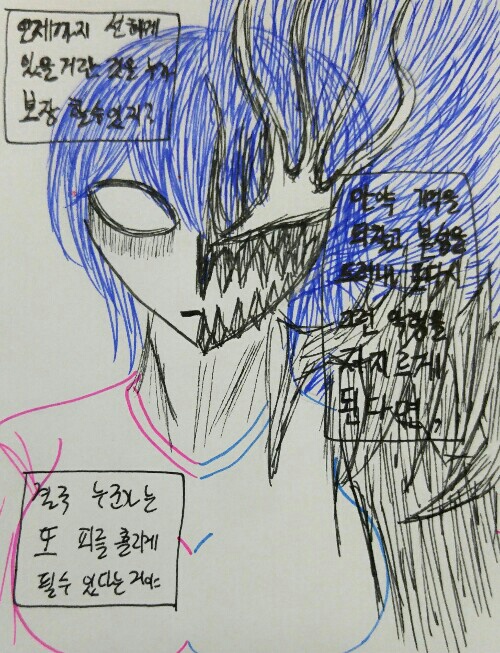 언제까지 선하게
있을거란 것을 누가
보장 할수있지?
만약 기억을
되찾고, 본성을
드러내, 또다시
그런 악행을
저지르게
된다면,
결국 누군가는
또 피를 흘리게
될수 있다는 거야